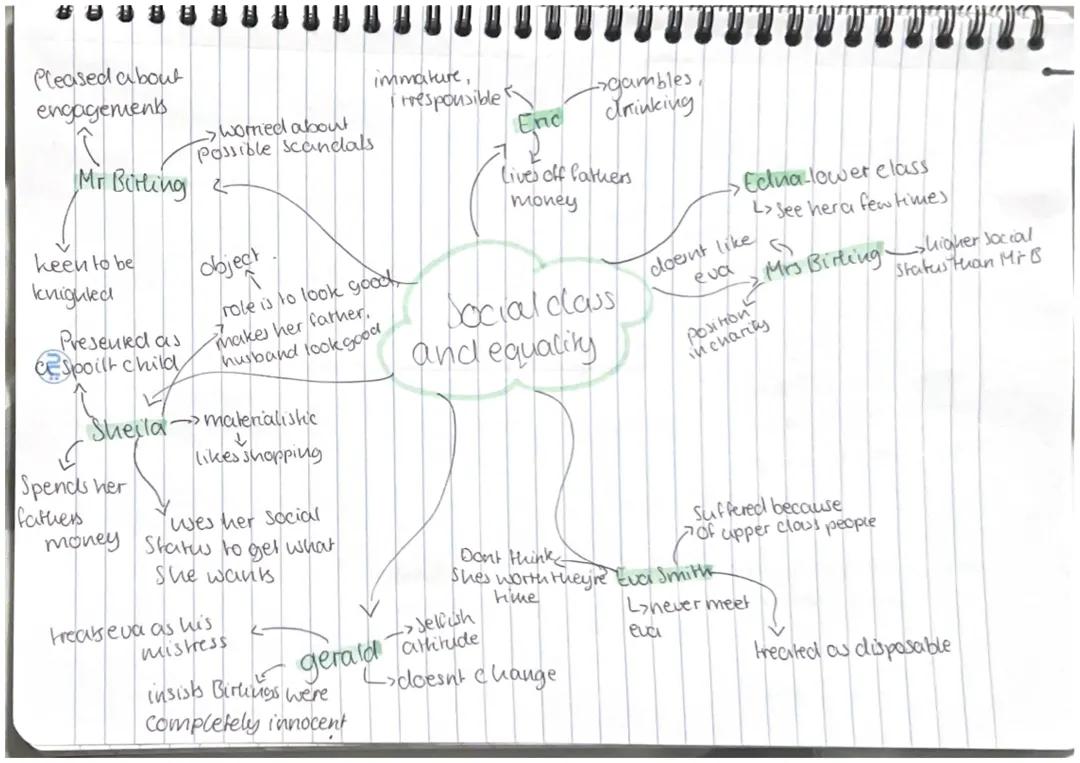 Pleased about
engagements
→ worried about
possible scandals
Mr Birling
keen to be
knighted
immature,
irresponsible
→ gambles,
drinking
Eric
Lives off fathers
money
Edna - lower class
↳ see her a few times
doesnt like
eva
Mrs Birling
→ higher social
status than Mr B
position
in charity
Social class
and equality
object
role is to look good,
makes her father,
husband look good
Presented as
a spoilt child
Sheila
→ materialistic
↓
likes shopping
Spends her
fathers
money
uses her social
Status to get what
She wants
Suffered because
of upper class people
Dont think
Shes worth theyre
time
Eva Smith
↳ never meet
eva
treated as disposable
treats eva as his
mistress
gerald
→ selfish
attitude
↳ doesnt change
insists Birlings were
completely innocent